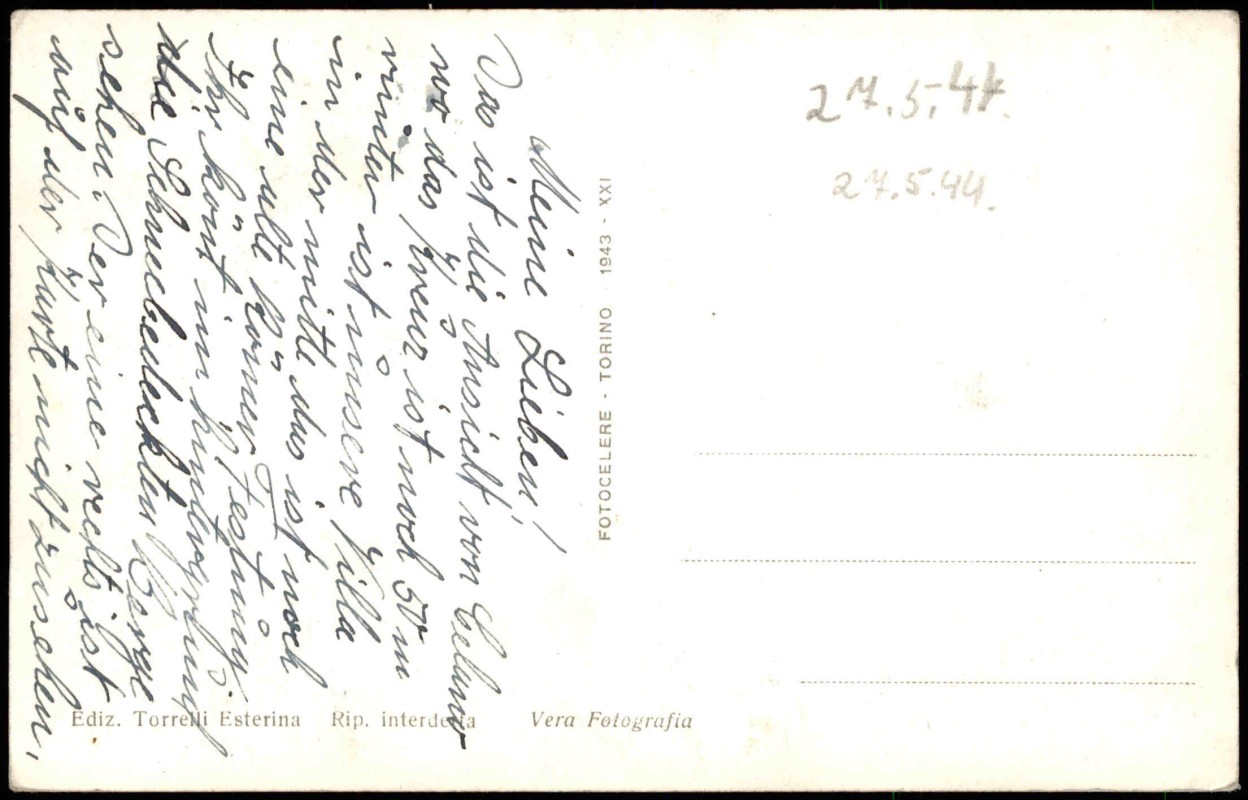 Meine Lieben!
Das ist die Ansicht von Celano
wo das Kreuz ist noch 50 m
rünter ist unsere Villa
in der mitte das ist noch
eine alte Römer Festung
Ihr könt im hintergrund
die Schneebedeckten Berge
sehen. Der eine rechts ist
auf der Karte nicht zusehen.
FOTOCELERE - TORINO 1943 - XXI
Ediz. Torrelli Esterina Rip. interdetta Vera Fotografia
27.5.44.
27.5.44.